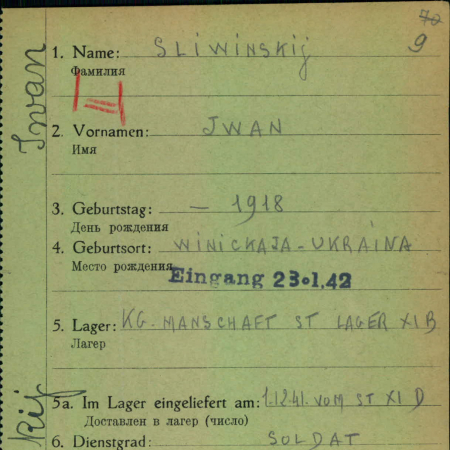 70
9
Iwan
1. Name: SLIWINSKIJ
Фамилия
2. Vornamen: JWAN
Имя
3. Geburtstag: — 1918
День рождения
4. Geburtsort: WINICKAJA-UKRAINA
Место рождения
Eingang 23.1.42
5. Lager: KG. MANSCHAFT ST LAGER XI B
Лагер
5a. Im Lager eingeliefert am: 1.12.41. VOM ST XI D
Доставлен в лагер (число)
kij
6. Dienstgrad: SOLDAT